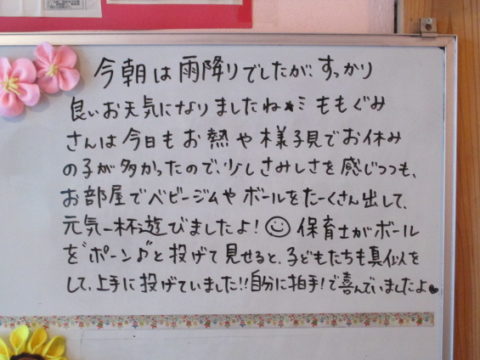 今朝は雨降りでしたが、すっかり
良いお天気になりましたね☼ ももぐみ
さんは今日もお熱や様子見でお休み
の子が多かったので、少しさみしさを感じつつも、
お部屋でベビージムやボールをたーくさん出して、
元気一杯遊びましたよ!☺ 保育士がボール
を"ポーン♪"と投げて見せると、子どもたちも真似を
して、上手に投げていました!!自分に拍手!で喜んでいましたよ♥